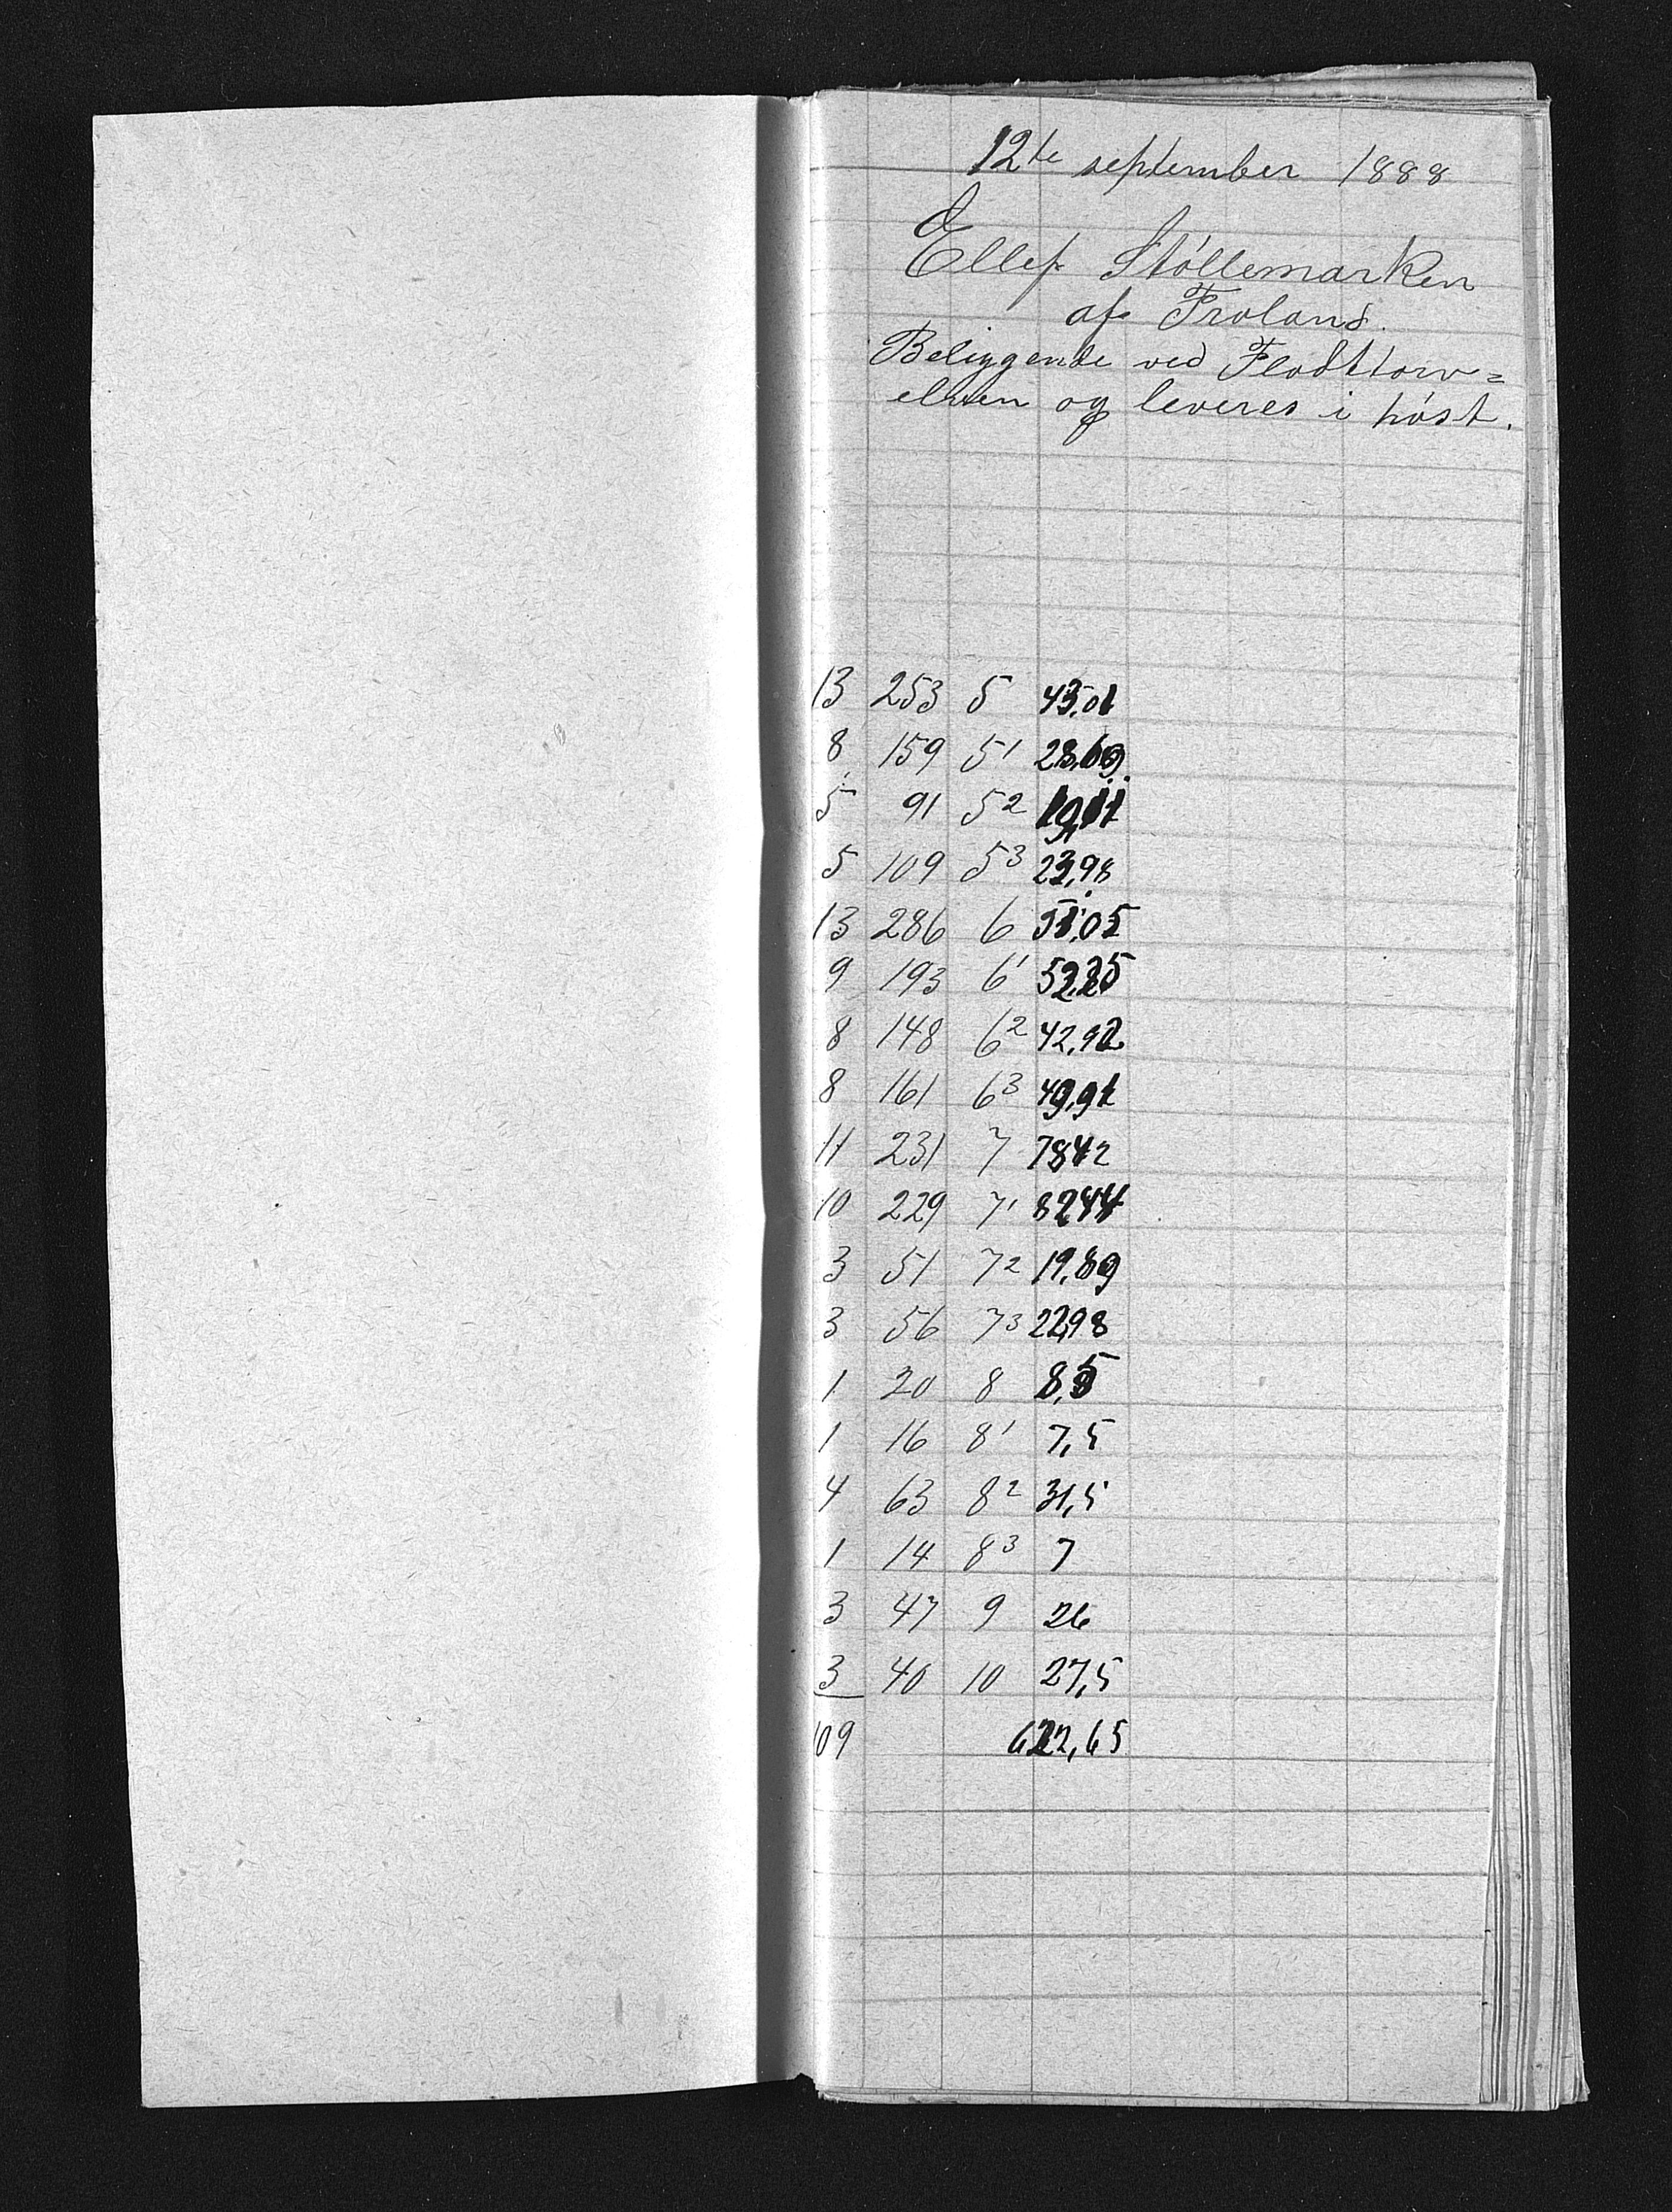 12te september 1888
Ellef Stóllemarken
af Froland.
Beliggende ved Flodttorv=
elven og leveres i hóst.
13 253 5 43,01
8 159 5 1 28,69
5 91 5 2
5 109 5 3 23,98
13 286 6
9 193 6 1 52,25
8 148 6 2 42,92
8 161 6 3 49,91
11 231 7 7842
10 229 7 1 8244
3 51 7 2 19,89
3 56 7 3 22,98
1 20 8 8,5
1 16 8 1 7,5
4 63 8 2 31,5
1 14 8 3 7
3 47 9 26
3 40 10 27,5
109 622,65